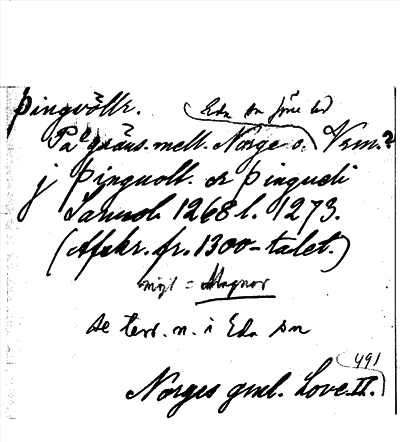 Þingvőlle.
Eda sn före td
På gräns. mell. Norge o. Verm.?
j Þinguoll. oc Þingueli
Samnob. 1268 l. 1273.
(Afskr. fr. 1300-talet.)
mojl = Magnor
se terr. n. i Eda sn
491
Norges gml. Love. II.